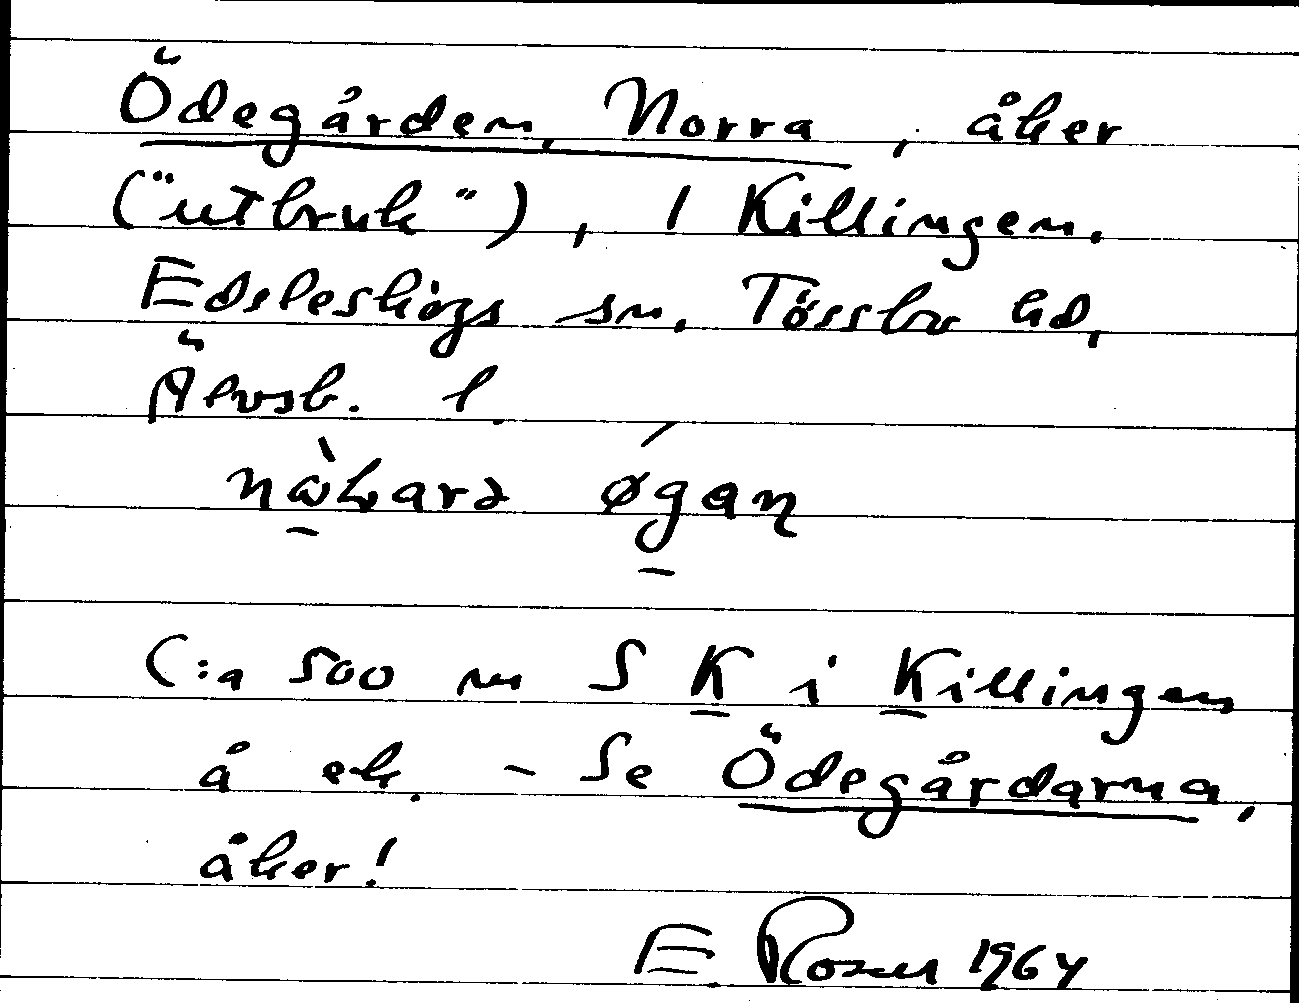 Ödegården, Norra, åker
("utbruk"), 1 Killingen.
Edsleskogs sn. Tössbo hd,
Älvsb. l.
Ca 500 m S K i Killingen
å ek. - Se Ödegårdarna,
åker!
E. Rosen 1964